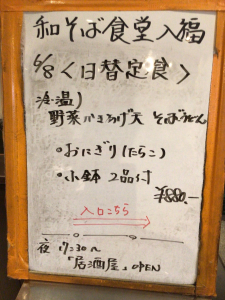 和そば食堂 入福
6/8 〈日替定食〉
冷・温)
野菜かきあげ天 そばorうどん
・おにぎり(たらこ)
・小鉢 2品付
¥880.-
入口こちら
夜 17:30〜
「居酒屋」OPEN